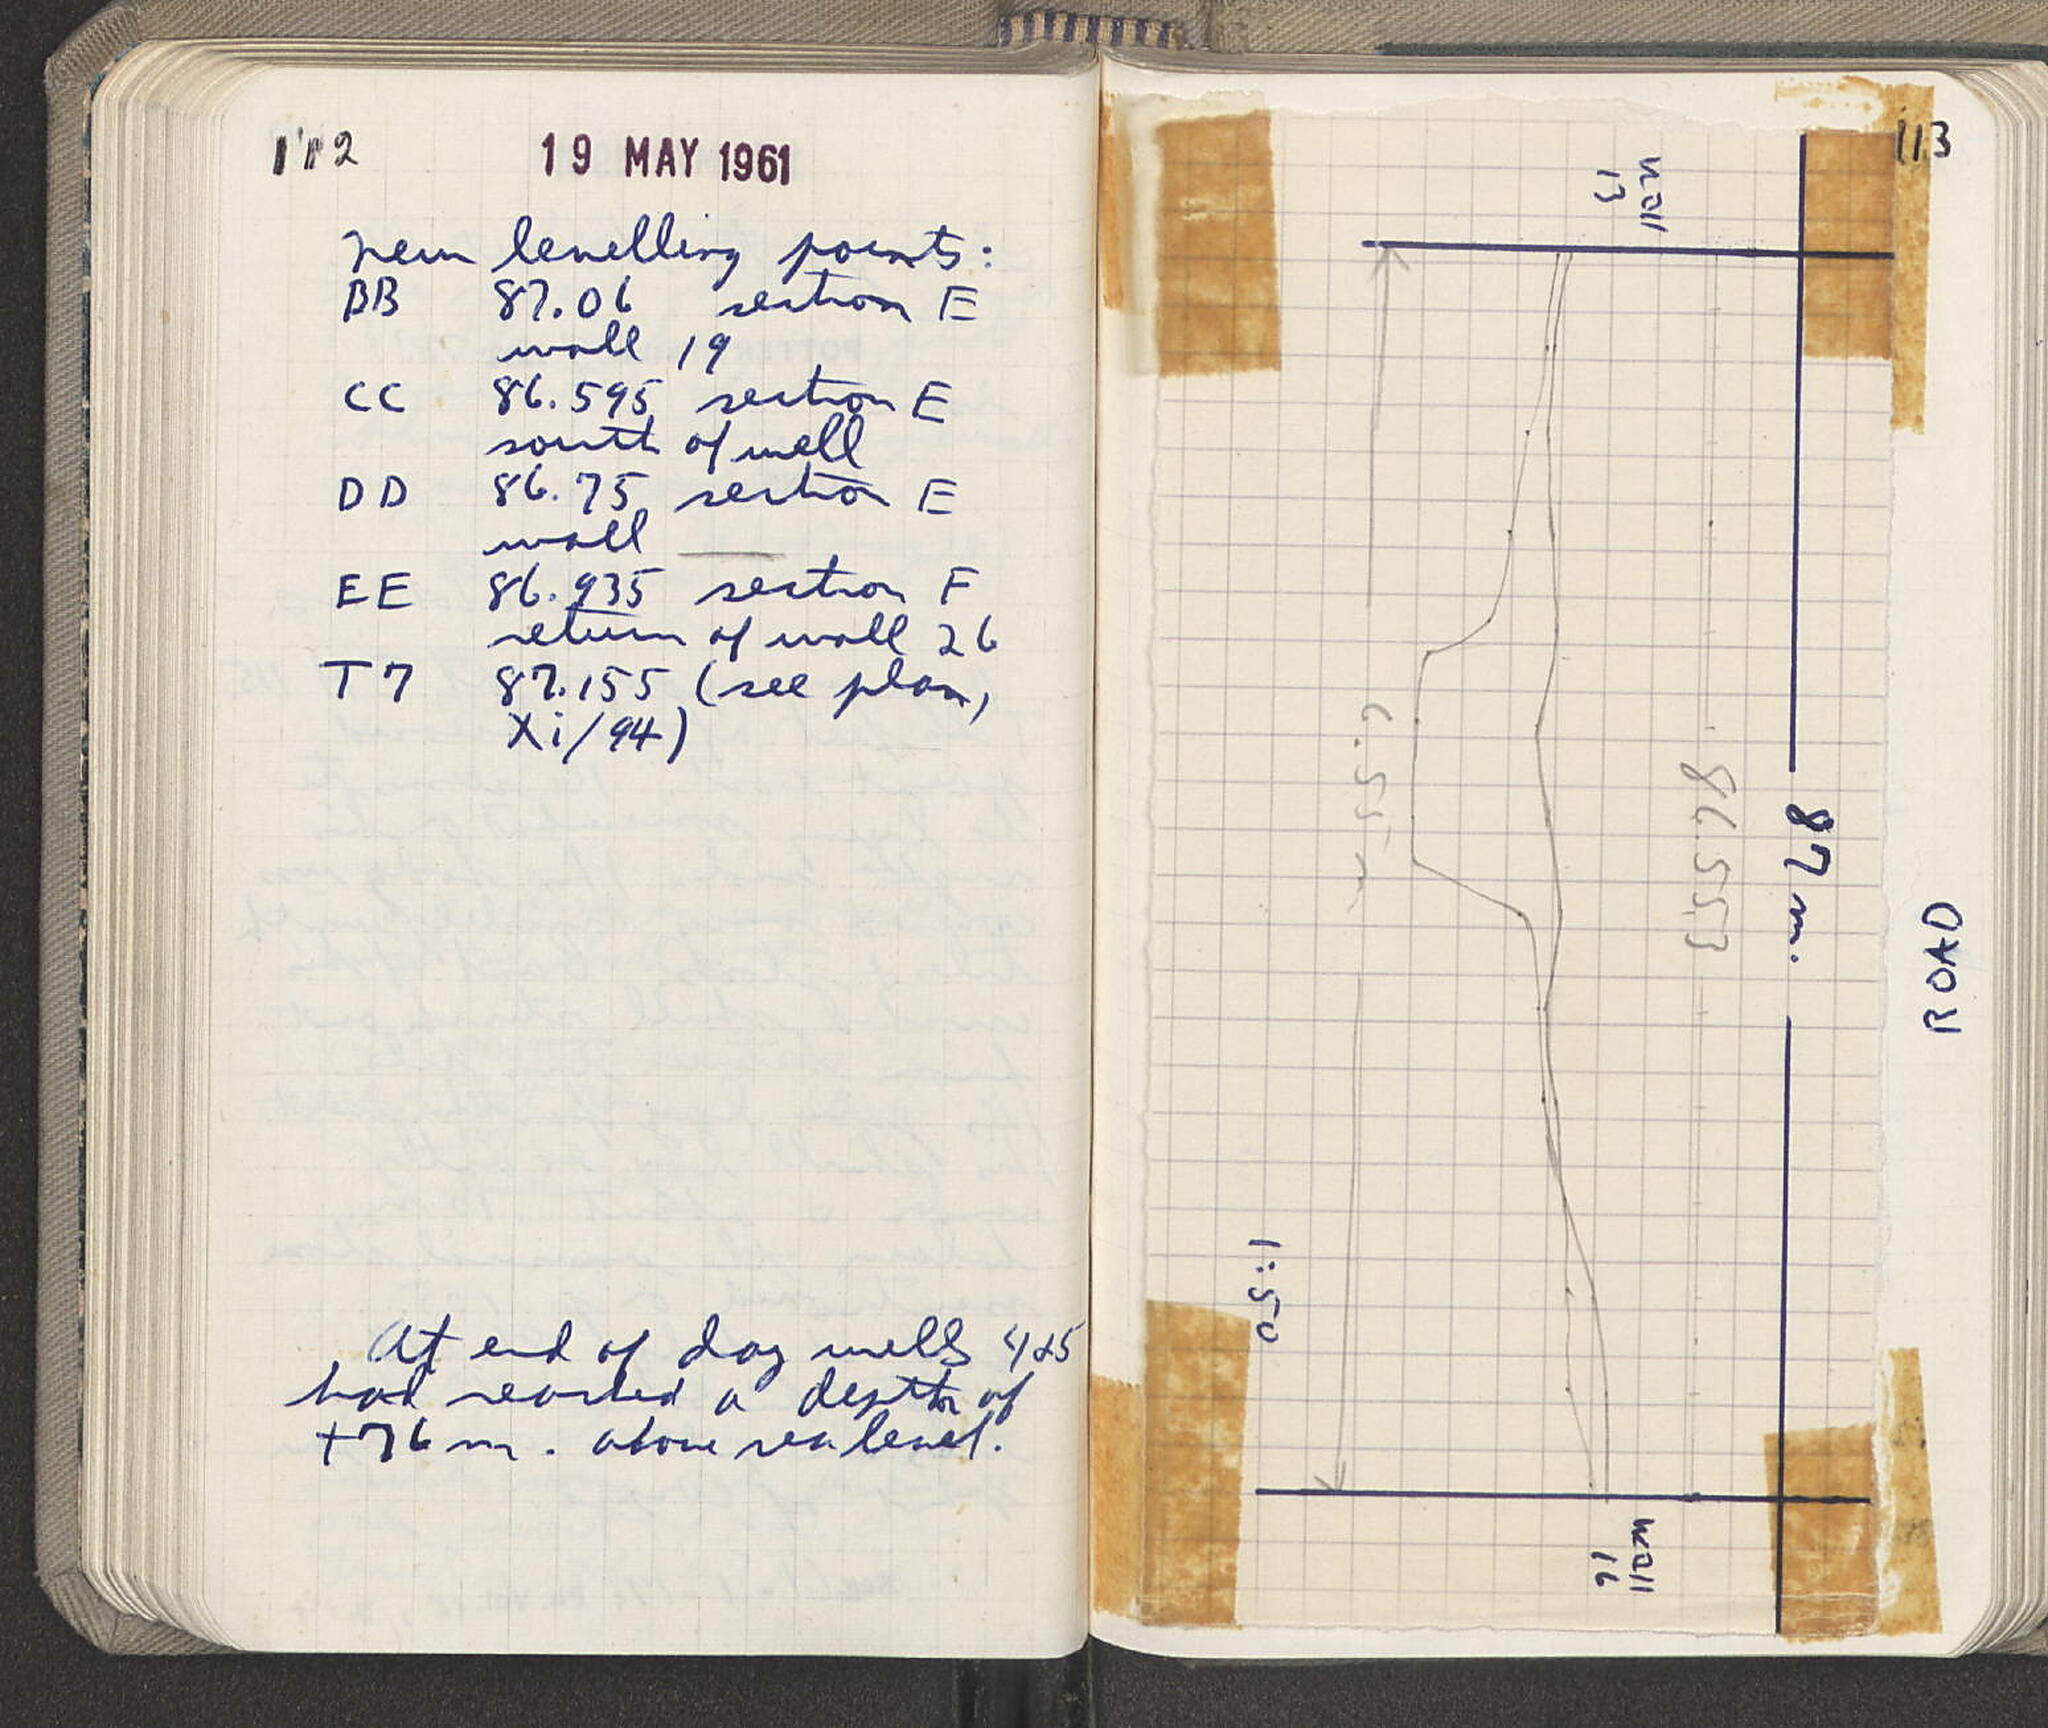 112
19 MAY 1961
new levelling points:
BB 87.06 section E
wall 19
CC 86.595 section E
south of well
DD 86.75 section E
wall ——
EE 86.935 section F
return of wall 26
T7 87.155 (see plan,
Xi/94)
At end of day wells 4&5
had reached a depth of
+76 m. above sea level.
113
wall
13
6.55 m
86.55
87 m.
ROAD
1:50
wall